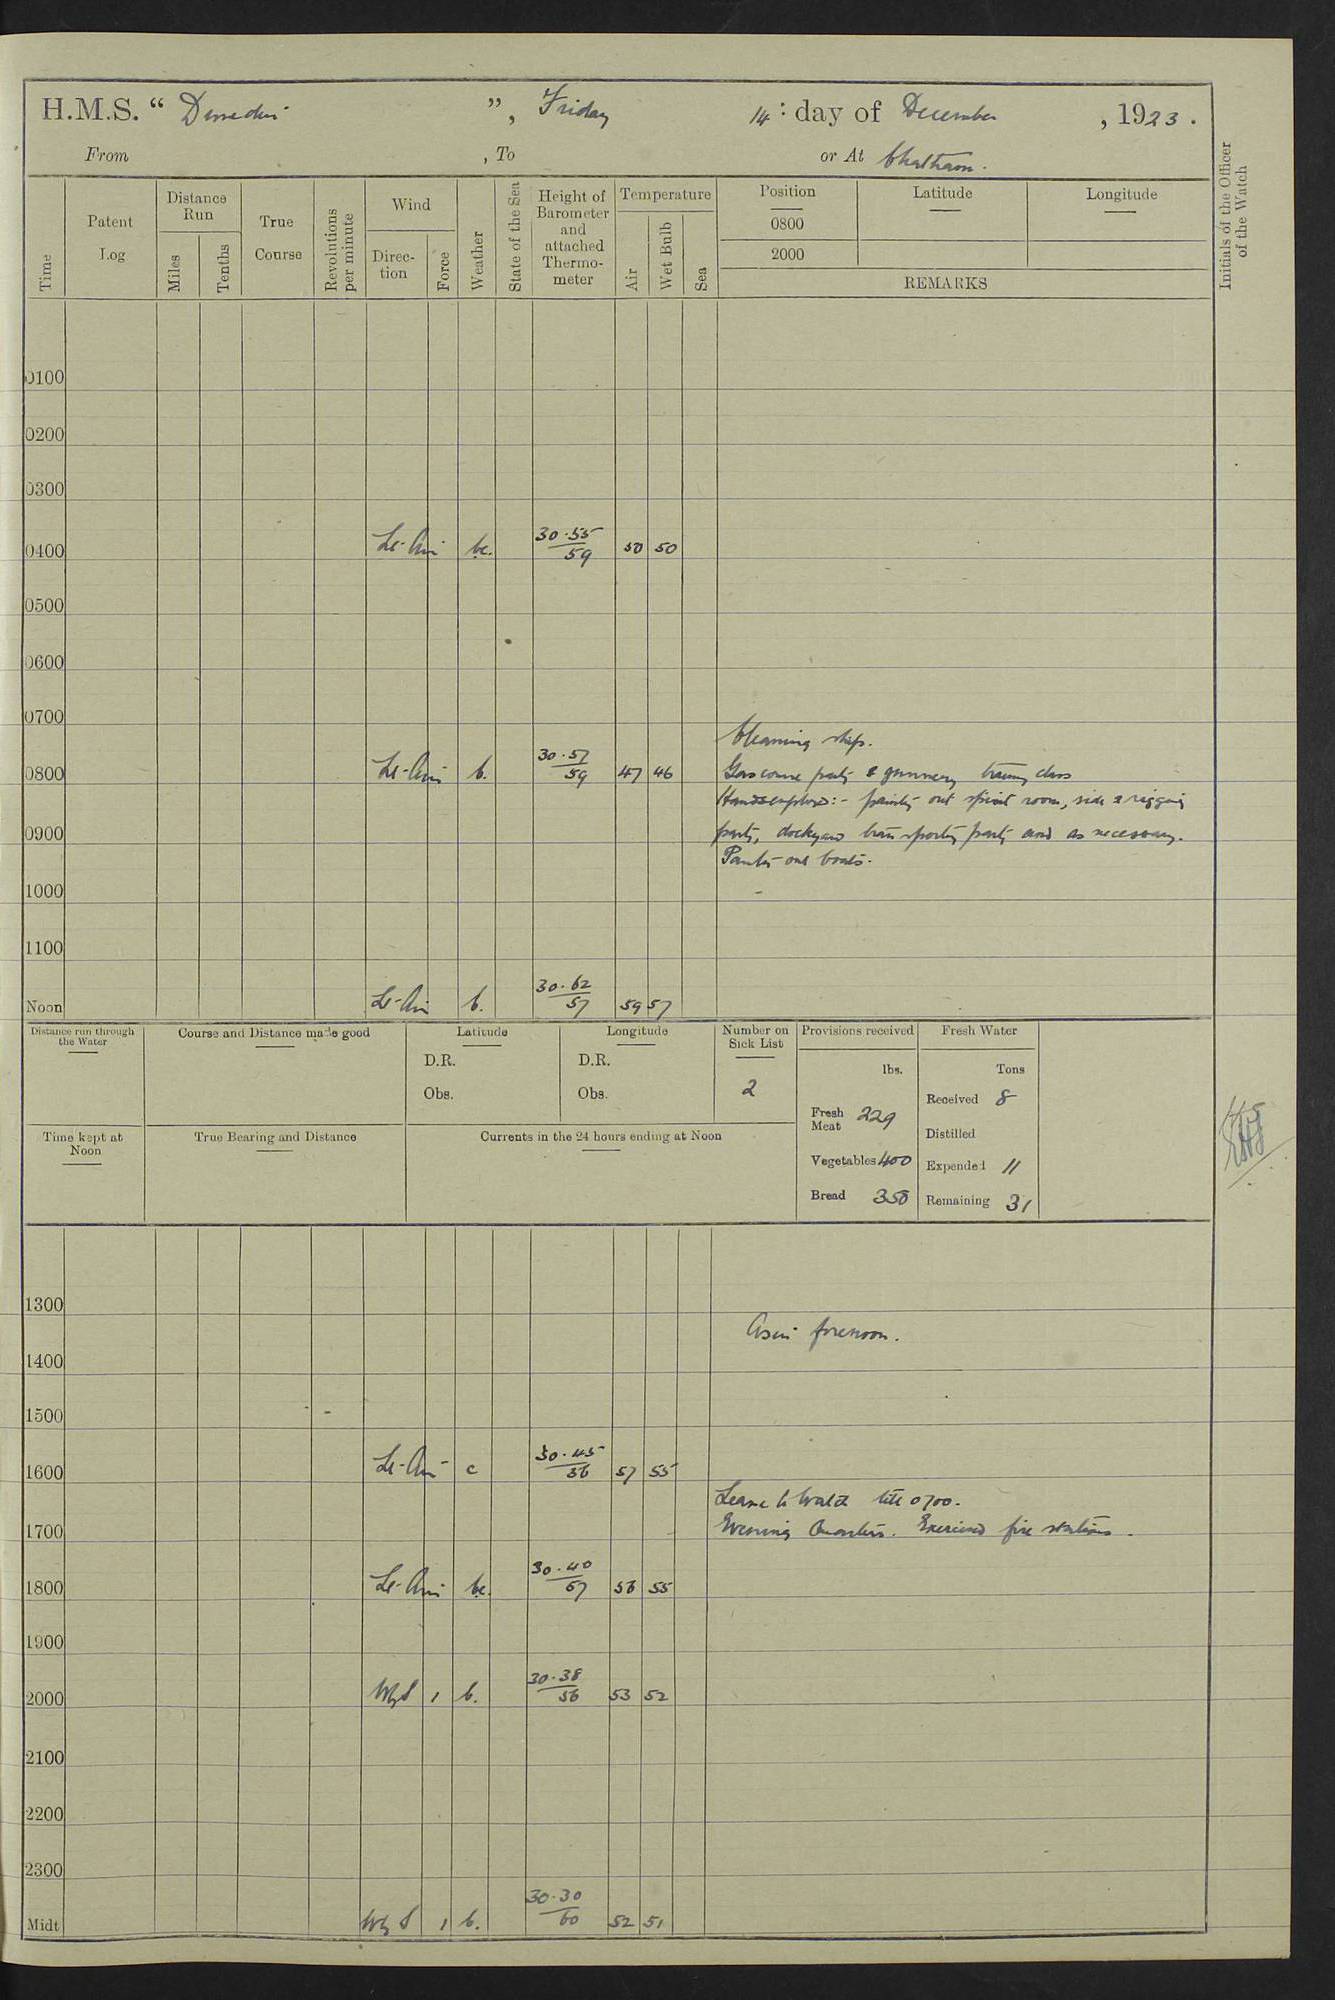 H.M.S. “ Dunedin ”, Friday 14 : day of December , 1923 .
From , To or At Chatham.
Time
Patent Log
Distance Run
Miles
Tenths
True Course
Revolutions per minute
Wind
Direc-tion
Force
Weather
State of the Sea
Height of Barometer and attached Thermo-meter
Temperature
Air
Wet Bulb
Sea
Position
Latitude
Longitude
0800
2000
REMARKS
Initials of the Officer of the Watch
0100
0200
0300
0400 Lt-Airs bc. 30.55 / 59 50 50
0500
0600
0700
Cleaning ship.
0800 Lt-Airs b. 30.57 / 59 47 46 Gas course party & gunnery training class
Hands employed:- painting out spirit room, side & rigging
0900 party, dockyard transporting party and as necessary.
Painting out boats.
1000
1100
Noon Lt-Airs b. 30.62 / 57 59 57
Distance run through the Water
Course and Distance made good
Latitude
D.R.
Obs.
Longitude
D.R.
Obs.
Number on Sick List
2
Provisions received
lbs.
Fresh Meat 229
Vegetables 400
Bread 358
Fresh Water
Tons
Received 8
Distilled
Expended 11
Remaining 31
Time kept at Noon
True Bearing and Distance
Currents in the 24 hours ending at Noon
1300
As in forenoon.
1400
1500
1600 Lt-Airs c 30.45 / 56 57 55
Leave to Watch till 0700.
1700 Evening Quarters. Exercised fire stations.
1800 Lt-Airs bc. 30.40 / 57 56 55
1900
2000 WbyS 1 b. 30.38 / 56 53 52
2100
2200
2300
Midt WbyS 1 b. 30.30 / 60 52 51